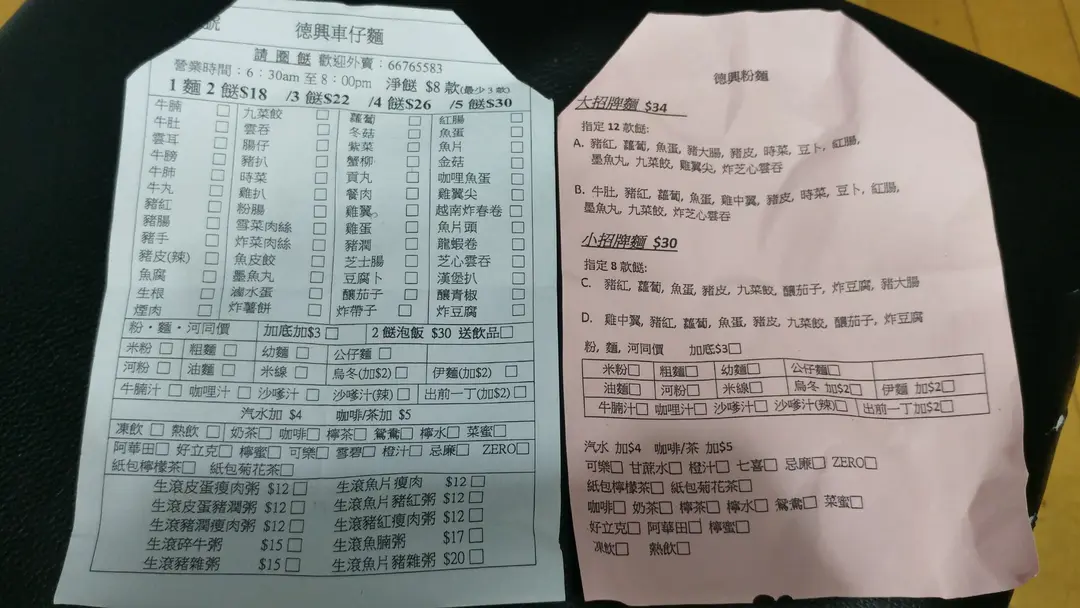 號
德興車仔麵
請圈餸 歡迎外賣：66765583
營業時間：6：30am 至 8：00pm 淨餸 $8 款(最少3款)
1 麵 2 餸$18 /3 餸$22 /4 餸$26 /5 餸$30
牛腩□ 九菜餃□ 蘿蔔□ 紅腸□
牛肚□ 雲吞□ 冬菇□ 魚蛋□
雲耳□ 腸仔□ 紫菜□ 魚片□
牛膀□ 豬扒□ 蟹柳□ 金菇□
牛肺□ 時菜□ 貢丸□ 咖哩魚蛋□
牛丸□ 雞扒□ 餐肉□ 雞翼尖□
豬紅□ 粉腸□ 雞翼□ 越南炸春卷□
豬腸□ 雪菜肉絲□ 雞蛋□ 魚片頭□
豬手□ 炸菜肉絲□ 豬潤□ 龍蝦卷□
豬皮(辣)□ 魚皮餃□ 芝士腸□ 芝心雲吞□
魚腐□ 墨魚丸□ 豆腐卜□ 漢堡扒□
生根□ 滷水蛋□ 釀茄子□ 釀青椒□
煙肉□ 炸薯餅□ 炸帶子□ 炸豆腐□
粉·麵·河同價 加底加$3□ 2 餸泡飯 $30 送飲品□
米粉□ 粗麵□ 幼麵□ 公仔麵□
河粉□ 油麵□ 米線□ 烏冬(加$2)□ 伊麵(加$2)□
牛腩汁□ 咖哩汁□ 沙嗲汁□ 沙嗲汁(辣)□ 出前一丁(加$2)□
汽水加 $4 咖啡/茶加 $5
凍飲□ 熱飲□ 奶茶□ 咖啡□ 檸茶□ 鴛鴦□ 檸水□ 菜蜜□
阿華田□ 好立克□ 檸蜜□ 可樂□ 雪碧□ 橙汁□ 忌廉□ ZERO□
紙包檸檬茶□ 紙包菊花茶□
生滾皮蛋瘦肉粥 $12□ 生滾魚片瘦肉 $12□
生滾皮蛋豬潤粥 $12□ 生滾魚片豬紅粥 $12□
生滾豬潤瘦肉粥 $12□ 生滾豬紅瘦肉粥 $12□
生滾碎牛粥 $15□ 生滾魚腩粥 $17□
生滾豬雜粥 $15□ 生滾魚片豬雜粥 $20□
德興粉麵
大招牌麵 $34
指定 12 款餸:
A. 豬紅, 蘿蔔, 魚蛋, 豬大腸, 豬皮, 時菜, 豆卜, 紅腸,
墨魚丸, 九菜餃, 雞翼尖, 炸芝心雲吞
B. 牛肚, 豬紅, 蘿蔔, 魚蛋, 雞中翼, 豬皮, 時菜, 豆卜, 紅腸,
墨魚丸, 九菜餃, 炸芝心雲吞
小招牌麵 $30
指定 8 款餸:
C. 豬紅, 蘿蔔, 魚蛋, 豬皮, 九菜餃, 釀茄子, 炸豆腐, 豬大腸
D. 雞中翼, 豬紅, 蘿蔔, 魚蛋, 豬皮, 九菜餃, 釀茄子, 炸豆腐
粉, 麵, 河同價 加底$3□
米粉□ 粗麵□ 幼麵□ 公仔麵□
油麵□ 河粉□ 米線□ 烏冬 加$2□ 伊麵 加$2□
牛腩汁□ 咖哩汁□ 沙嗲汁□ 沙嗲汁(辣)□ 出前一丁加$2□
汽水 加$4 咖啡/茶 加$5
可樂□ 甘蔗水□ 橙汁□ 七喜□ 忌廉□ ZERO□
紙包檸檬茶□ 紙包菊花茶□
咖啡□ 奶茶□ 檸茶□ 檸水□ 鴛鴦□ 菜蜜□
好立克□ 阿華田□ 檸蜜□
凍飲□ 熱飲□